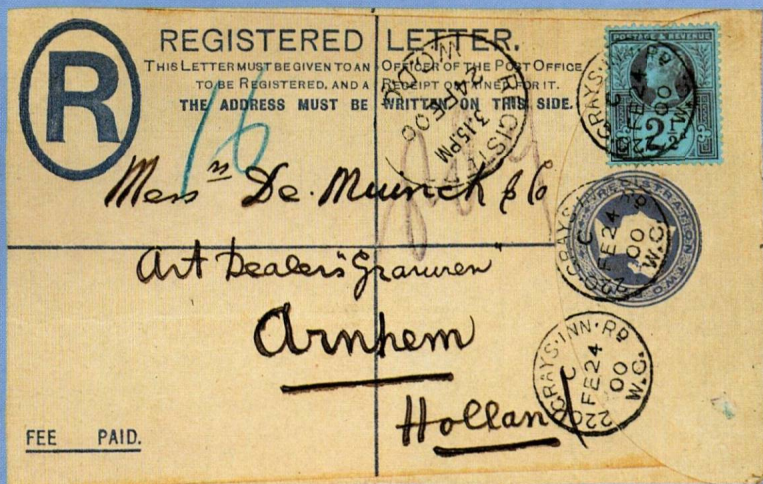 REGISTERED LETTER.
THIS LETTER MUST BE GIVEN TO AN OFFICER OF THE POST OFFICE
TO BE REGISTERED, AND A RECEIPT OBTAINED FOR IT.
THE ADDRESS MUST BE WRITTEN ON THIS SIDE.
R
16
REGISTERED
3.15 PM
24 FE 00
POSTAGE & REVENUE
2½
GRAYS·INN·RD
C
FE 24
00
W.C.
22
Messrs De Muinck & Co
REGISTRATION TWO
GRAYS·INN·RD
C
FE 24
00
W.C.
220
Art Dealers "Gravuren"
Arnhem
Holland
GRAYS·INN·RD
C
FE 24
00
W.C.
220
FEE PAID.